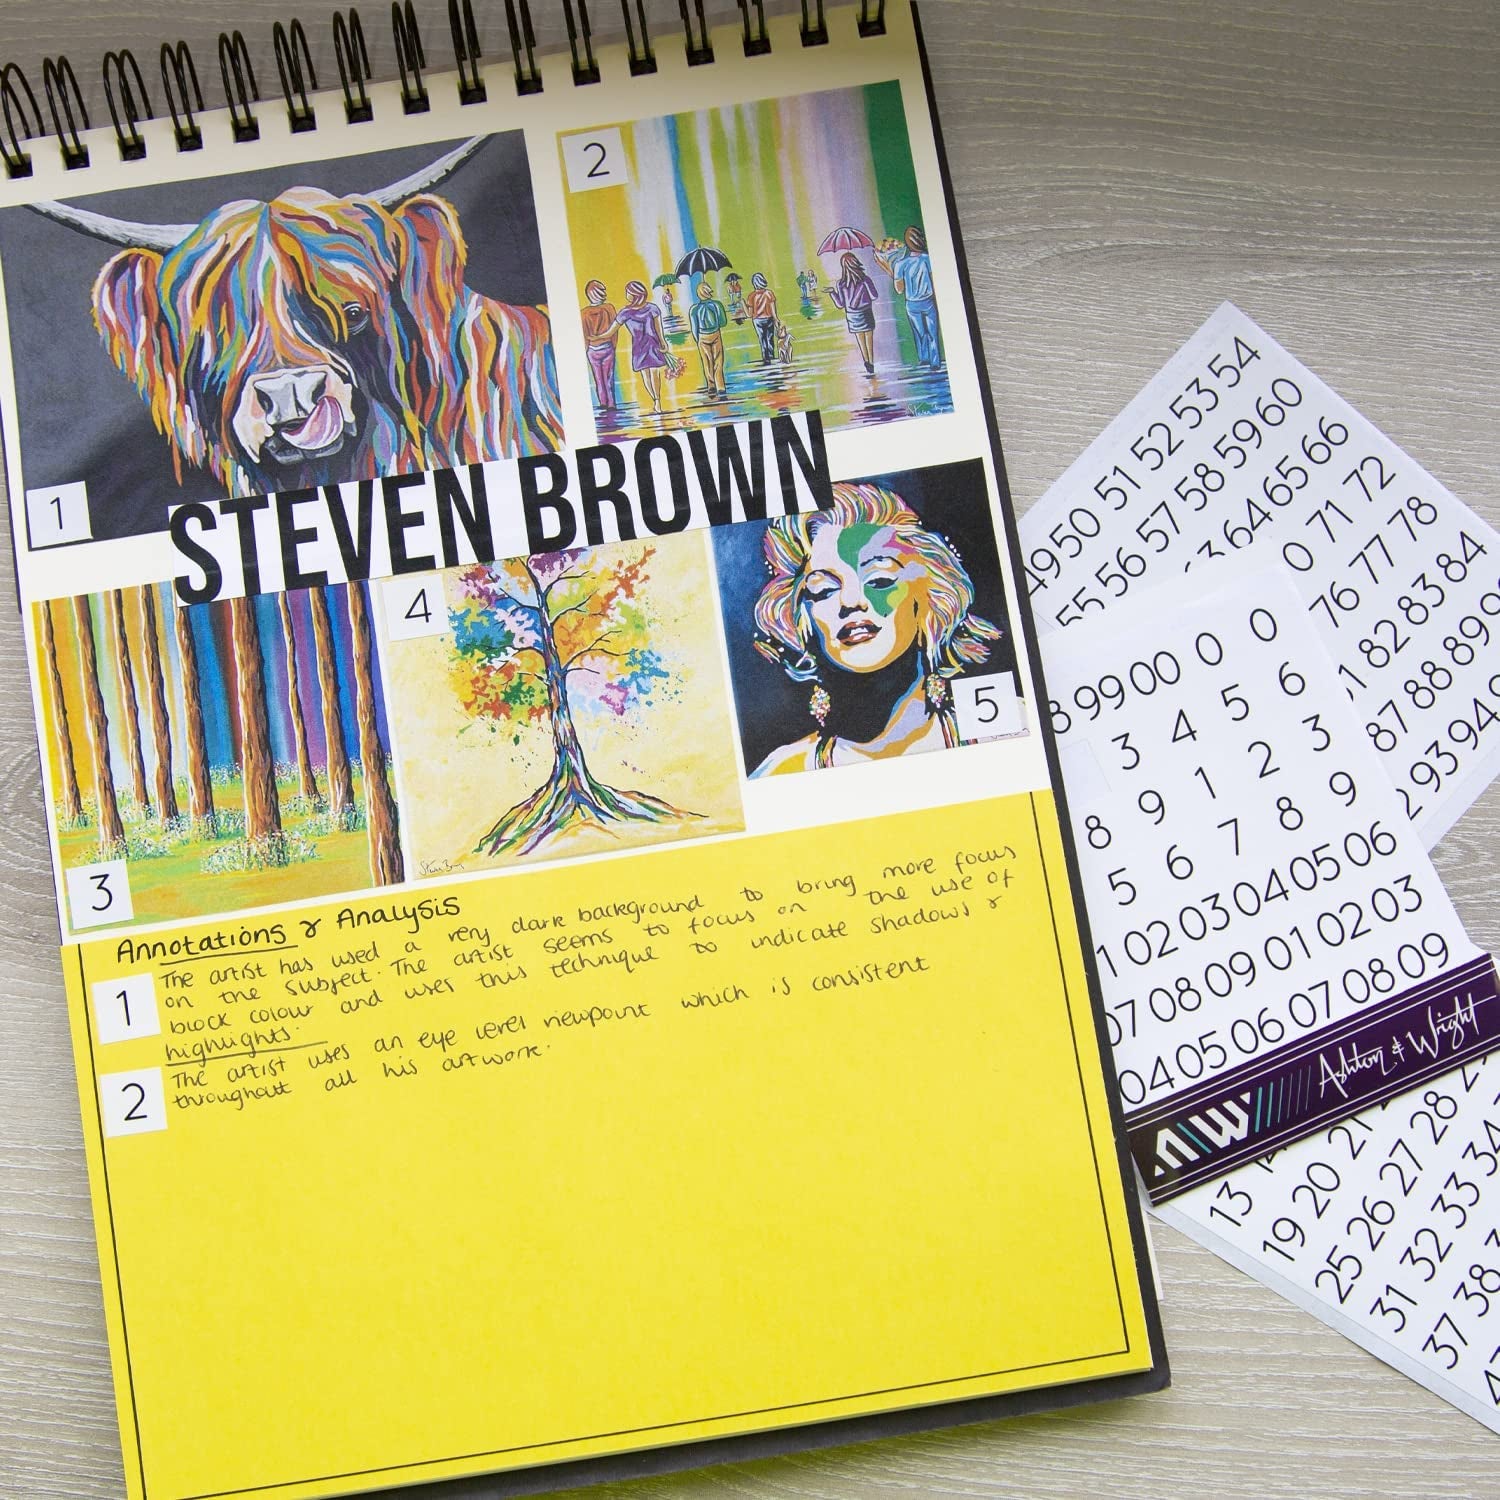 2
1
STEVEN BROWN
4
5
3
Annotations & Analysis
1
The artist has used a very dark background to bring more focus
on the subject. The artist seems to focus on the use of
block colour and uses this technique to indicate shadows &
highlights.
2
The artist uses an eye level viewpoint which is consistent
throughout all his artwork.
51 52 53 54
49 50 57 58 59 60
55 56 64 65 66
71 72
76 77 78
82 83 84
87 88 89
93 94
99 00 0 0
3 4 5 6
8 9 1 2 3
5 6 7 8 9
02 03 04 05 06
08 09 01 02 03
04 05 06 07 08 09
AW Ashton & Wright
13
19 20 21
25 26 27 28
31 32 33 34
37 38